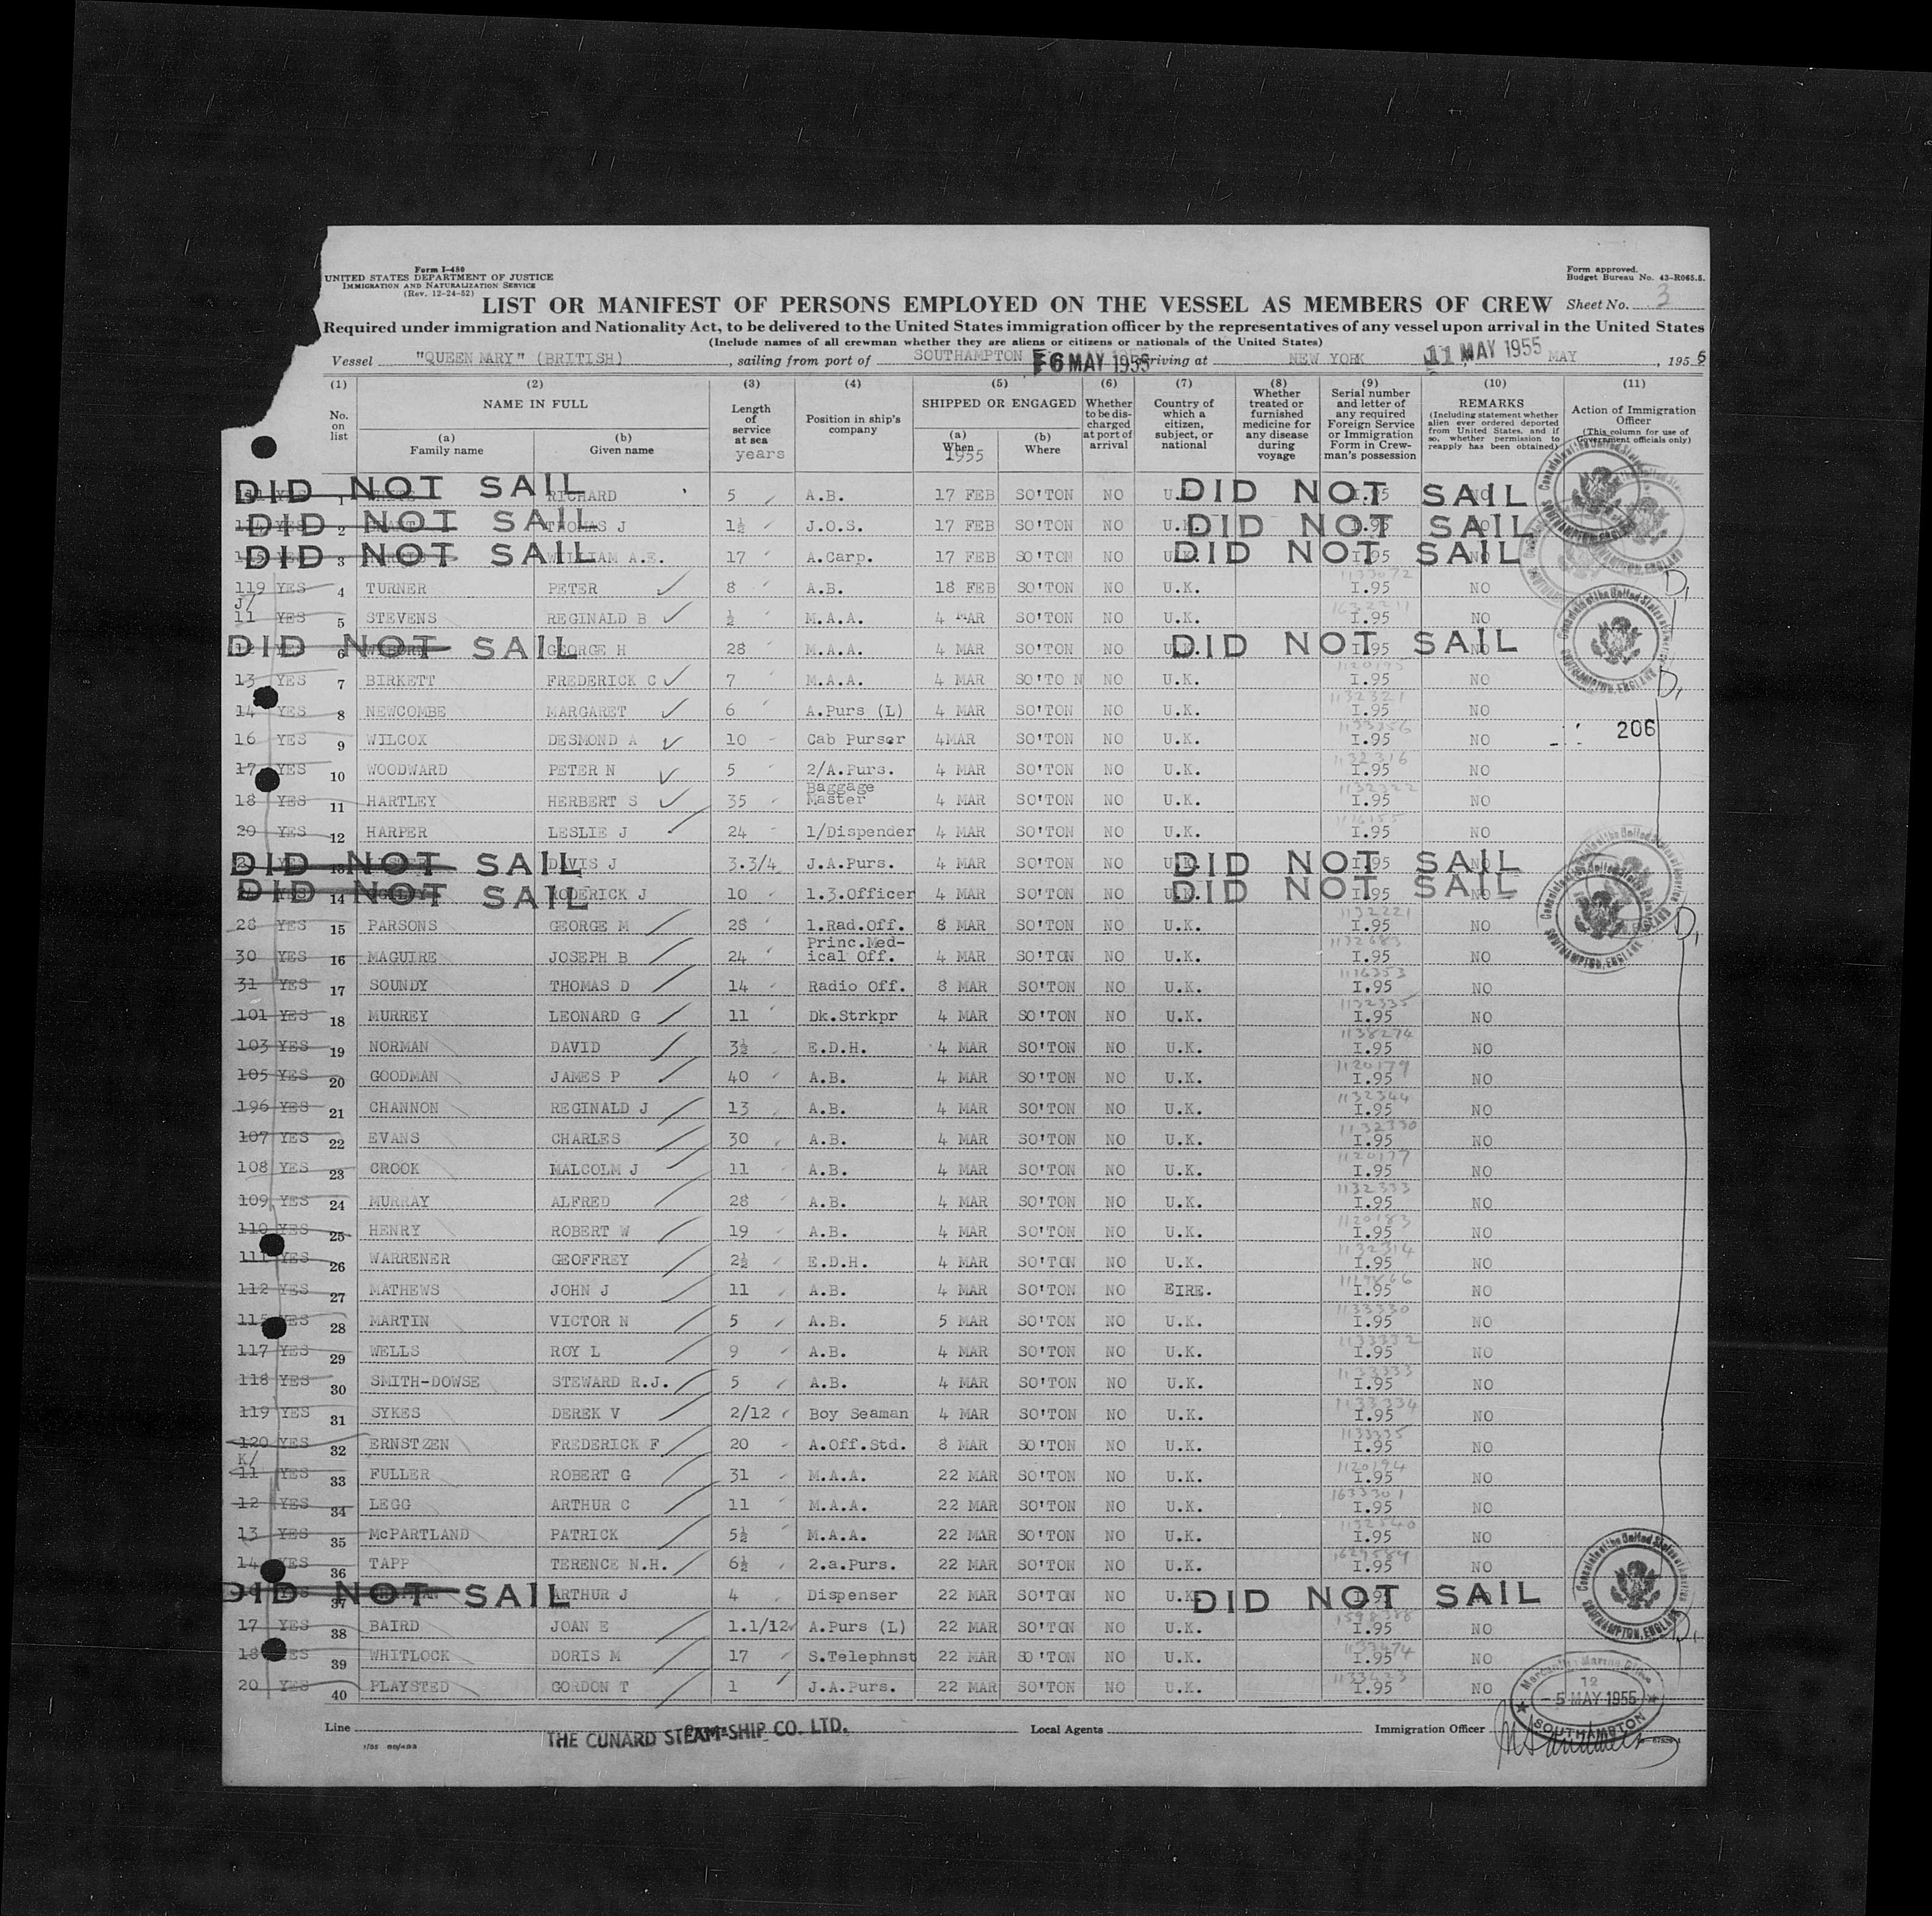 Form I-480
UNITED STATES DEPARTMENT OF JUSTICE
IMMIGRATION AND NATURALIZATION SERVICE
(Rev. 12-24-52)
Form approved.
Budget Bureau No. 43-R065.5.
LIST OR MANIFEST OF PERSONS EMPLOYED ON THE VESSEL AS MEMBERS OF CREW Sheet No. 3
Required under immigration and Nationality Act, to be delivered to the United States immigration officer by the representatives of any vessel upon arrival in the United States
(Include names of all crewman whether they are aliens or citizens or nationals of the United States)
Vessel "QUEEN MARY" (BRITISH), sailing from port of SOUTHAMPTON 6 MAY 1955 arriving at NEW YORK 11 MAY 1955 MAY, 1955
(1) (2) (3) (4) (5) (6) (7) (8) (9) (10) (11)
No. on list
NAME IN FULL
(a) Family name
(b) Given name
Length of service at sea years
Position in ship's company
SHIPPED OR ENGAGED
(a) When 1955
(b) Where
Whether to be discharged at port of arrival
Country of which a citizen, subject, or national
Whether treated or furnished medicine for any disease during voyage
Serial number and letter of any required Foreign Service or Immigration Form in Crewman's possession
REMARKS
(Including statement whether alien ever ordered deported from United States, and if so, whether permission to reapply has been obtained)
Action of Immigration Officer
(This column for use of Government officials only)
DID NOT SAIL 1 RICHARD 5 A.B. 17 FEB SO'TON NO DID NOT SAIL
DID NOT SAIL 2 THOMAS J 1½ J.O.S. 17 FEB SO'TON NO DID NOT SAIL
DID NOT SAIL 3 WILLIAM A.E. 17 A.Carp. 17 FEB SO'TON NO DID NOT SAIL
119 YES 4 TURNER PETER 8 A.B. 18 FEB SO'TON NO U.K. I.95 NO
J/
11 YES 5 STEVENS REGINALD B ½ M.A.A. 4 MAR SO'TON NO U.K. I.95 NO
DID NOT SAIL 6 GEORGE H 28 M.A.A. 4 MAR SO'TON NO DID NOT SAIL
13 YES 7 BIRKETT FREDERICK C 7 M.A.A. 4 MAR SO'TO N NO U.K. 1120195 I.95 NO
14 YES 8 NEWCOMBE MARGARET 6 A.Purs (L) 4 MAR SO'TON NO U.K. 1132321 I.95 NO
16 YES 9 WILCOX DESMOND A 10 Cab Purser 4MAR SO'TON NO U.K. I.95 NO 206
17 YES 10 WOODWARD PETER N 5 2/A.Purs. 4 MAR SO'TON NO U.K. 1132316 I.95 NO
18 YES 11 HARTLEY HERBERT S 35 Baggage Master 4 MAR SO'TON NO U.K. 1132322 I.95 NO
20 YES 12 HARPER LESLIE J 24 1/Dispender 4 MAR SO'TON NO U.K. I.95 NO
DID NOT SAIL 13 DAVIS J 3.3/4 J.A.Purs. 4 MAR SO'TON NO DID NOT SAIL
DID NOT SAIL 14 RODERICK J 10 1.3.Officer 4 MAR SO'TON NO DID NOT SAIL
28 YES 15 PARSONS GEORGE M 28 1.Rad.Off. 8 MAR SO'TON NO U.K. 1132221 I.95 NO
30 YES 16 MAGUIRE JOSEPH B 24 Princ.Med-ical Off. 4 MAR SO'TON NO U.K. 1132683 I.95 NO
31 YES 17 SOUNDY THOMAS D 14 Radio Off. 8 MAR SO'TON NO U.K. 1116353 I.95 NO
101 YES 18 MURREY LEONARD G 11 Dk.Strkpr 4 MAR SO'TON NO U.K. 1132335 I.95 NO
103 YES 19 NORMAN DAVID 3½ E.D.H. 4 MAR SO'TON NO U.K. 1138274 I.95 NO
105 YES 20 GOODMAN JAMES P 40 A.B. 4 MAR SO'TON NO U.K. 1120179 I.95 NO
196 YES 21 CHANNON REGINALD J 13 A.B. 4 MAR SO'TON NO U.K. 1132344 I.95 NO
107 YES 22 EVANS CHARLES 30 A.B. 4 MAR SO'TON NO U.K. 1132330 I.95 NO
108 YES 23 CROOK MALCOLM J 11 A.B. 4 MAR SO'TON NO U.K. 1120177 I.95 NO
109 YES 24 MURRAY ALFRED 28 A.B. 4 MAR SO'TON NO U.K. 1132333 I.95 NO
110 YES 25 HENRY ROBERT W 19 A.B. 4 MAR SO'TON NO U.K. 1120183 I.95 NO
111 YES 26 WARRENER GEOFFREY 2½ E.D.H. 4 MAR SO'TON NO U.K. 1132314 I.95 NO
112 YES 27 MATHEWS JOHN J 11 A.B. 4 MAR SO'TON NO EIRE. I.95 NO
115 YES 28 MARTIN VICTOR N 5 A.B. 5 MAR SO'TON NO U.K. 1133330 I.95 NO
117 YES 29 WELLS ROY L 9 A.B. 4 MAR SO'TON NO U.K. 1133332 I.95 NO
118 YES 30 SMITH-DOWSE STEWARD R.J. 5 A.B. 4 MAR SO'TON NO U.K. 1133333 I.95 NO
119 YES 31 SYKES DEREK V 2/12 Boy Seaman 4 MAR SO'TON NO U.K. 1133334 I.95 NO
120 YES 32 ERNSTZEN FREDERICK F 20 A.Off.Std. 8 MAR SO'TON NO U.K. 1133335 I.95 NO
K/
11 YES 33 FULLER ROBERT G 31 M.A.A. 22 MAR SO'TON NO U.K. 1120194 I.95 NO
12 YES 34 LEGG ARTHUR C 11 M.A.A. 22 MAR SO'TON NO U.K. 1633301 I.95 NO
13 YES 35 McPARTLAND PATRICK 5½ M.A.A. 22 MAR SO'TON NO U.K. I.95 NO
14 YES 36 TAPP TERENCE N.H. 6½ 2.a.Purs. 22 MAR SO'TON NO U.K. I.95 NO
DID NOT SAIL 37 ARTHUR J 4 Dispenser 22 MAR SO'TON NO DID NOT SAIL
17 YES 38 BAIRD JOAN E 1.1/12 A.Purs (L) 22 MAR SO'TON NO U.K. I.95 NO
18 YES 39 WHITLOCK DORIS M 17 S.Telephnst 22 MAR SO'TON NO U.K. 1133474 I.95 NO
20 YES 40 PLAYSTED GORDON T 1 J.A.Purs. 22 MAR SO'TON NO U.K. 1133423 I.95 NO
Consulate of the United States
SOUTHAMPTON, ENGLAND
Mercantile Marine Office
12
5 MAY 1955
SOUTHAMPTON
Line THE CUNARD STEAM-SHIP CO. LTD. Local Agents Immigration Officer